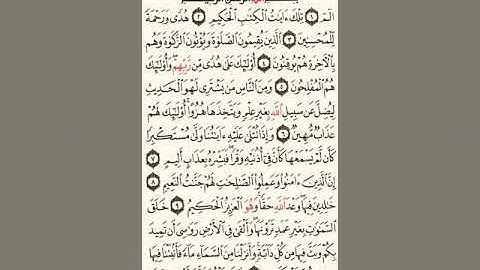 الٓمٓ ١ تِلْكَ ءَايَٰتُ ٱلْكِتَٰبِ ٱلْحَكِيمِ ٢ هُدًى وَرَحْمَةً
لِّلْمُحْسِنِينَ ٣ ٱلَّذِينَ يُقِيمُونَ ٱلصَّلَوٰةَ وَيُؤْتُونَ ٱلزَّكَوٰةَ وَهُم
بِٱلْأَخِرَةِ هُمْ يُوقِنُونَ ٤ أُو۟لَٰٓئِكَ عَلَىٰ هُدًى مِّن رَّبِّهِمْ وَأُو۟لَٰٓئِكَ
هُمُ ٱلْمُفْلِحُونَ ٥ وَمِنَ ٱلنَّاسِ مَن يَشْتَرِى لَهْوَ ٱلْحَدِيثِ
لِيُضِلَّ عَن سَبِيلِ ٱللَّهِ بِغَيْرِ عِلْمٍ وَيَتَّخِذَهَا هُزُوًا أُو۟لَٰٓئِكَ لَهُمْ
عَذَابٌ مُّهِينٌ ٦ وَإِذَا تُتْلَىٰ عَلَيْهِ ءَايَٰتُنَا وَلَّىٰ مُسْتَكْبِرًا
كَأَن لَّمْ يَسْمَعْهَا كَأَنَّ فِىٓ أُذُنَيْهِ وَقْرًا فَبَشِّرْهُ بِعَذَابٍ أَلِيمٍ ٧
إِنَّ ٱلَّذِينَ ءَامَنُوا۟ وَعَمِلُوا۟ ٱلصَّٰلِحَٰتِ لَهُمْ جَنَّٰتُ ٱلنَّعِيمِ ٨
خَٰلِدِينَ فِيهَا وَعْدَ ٱللَّهِ حَقًّا وَهُوَ ٱلْعَزِيزُ ٱلْحَكِيمُ ٩ خَلَقَ
ٱلسَّمَٰوَٰتِ بِغَيْرِ عَمَدٍ تَرَوْنَهَا وَأَلْقَىٰ فِى ٱلْأَرْضِ رَوَٰسِىَ أَن تَمِيدَ
بِكُمْ وَبَثَّ فِيهَا مِن كُلِّ دَآبَّةٍ وَأَنزَلْنَا مِنَ ٱلسَّمَآءِ مَآءً فَأَنۢبَتْنَا فِيهَا